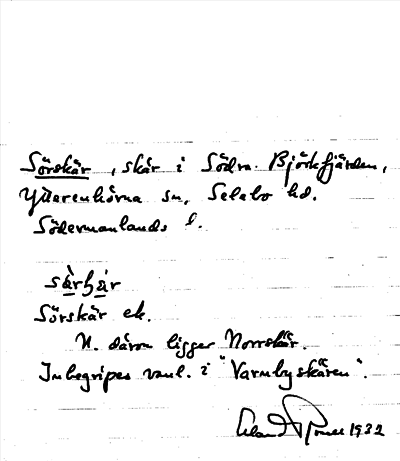 Sörskär, skär i Södra Björkfjärden,
Ytterenhörna sn, Selebo hd.
Södermanlands l.
Sörskär ek.
N. därom ligger Norrskär.
Inbegripes vanl. i "Varmbyskären".
1932